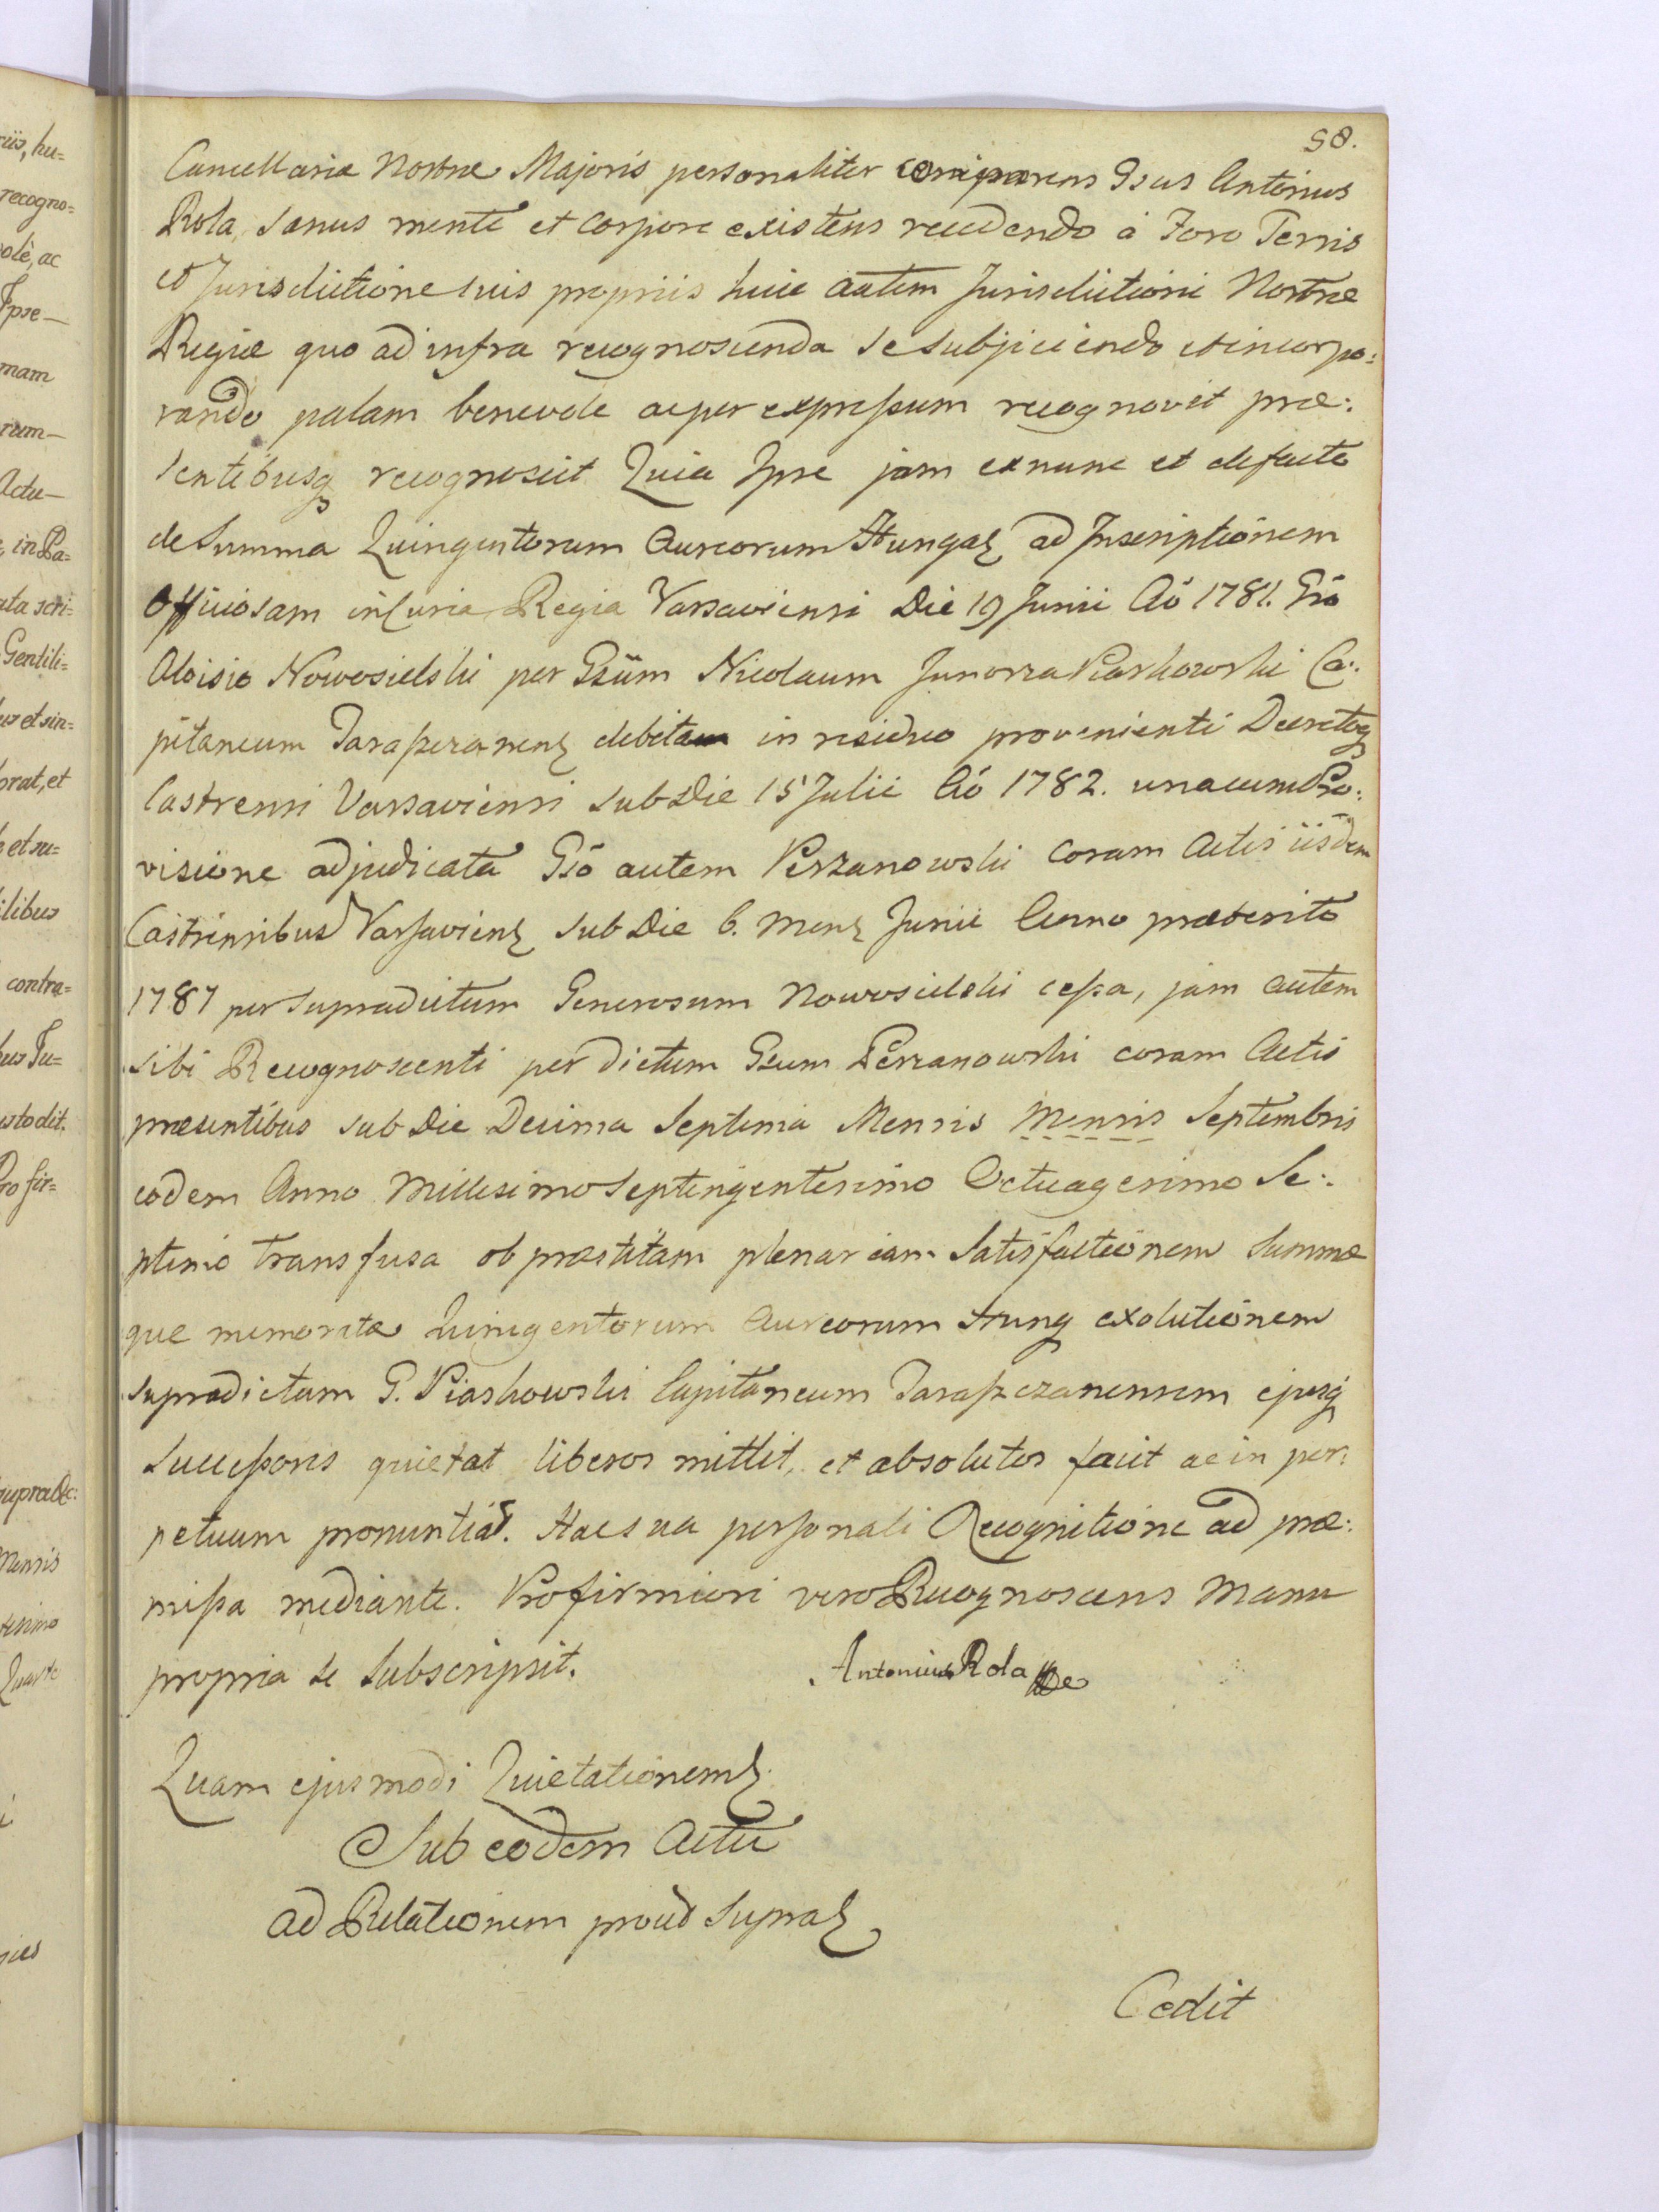 58.
Cancellariæ Nostræ Majoris personaliter comparens Gsus Antonius
Rola, sanus mente et corpore existens recedendo à Foro Terris
et Jurisdictione suis propriis huic autem Jurisdictioni Nostræ
Regiæ quo ad infra recognoscenda se subjiciendo et incorpo:
rando palam benevole ac per expressum recognovit præ:
sentibusq recognoscit Quia Ipse jam exnunc et defacto
de Summa Quingentorum Aureorum Hungar ad Inscriptionem
Officiosam in Curia Regia Varsaviensi Die 19 Junii Aô 1781. Gsô
Aloisio Nowosielski per Gsûm Nicolaum Junosza Piaskowski Ca:
pitaneum Taraszczanens debita in residuo provenienti Decretoq
Castrensi Varsaviensi sub Die 15 Julii Aô 1782. unacum Pro:
visione adjudicata Gsô autem Perzanowski coram Actis iisdem
Castrensibus Varsaviens sub Die 6. Mens Junii Anno præterito
1787 per supradictum Generosum Nowosielski cessa, jam autem
sibi Recognoscenti per dictum Gsum Perzanowski coram Actis
præsentibus sub Die Decima Septima Mensis Mensis Septembris
eodem Anno Millesimo Septingentesimo Octuagesimo Se:
ptimo transfusa ob præstitam plenariam Satisfactionem Summæ
que memoratæ Quingentorum Aureorum Hung exolutionem
supradictum G. Piaskowski Capitaneum Taraszczanensem ejusq
Successores quietat liberos mittit, et absolutos facit ac in per:
petuum pronuntiat. Hac sua personali Recognitione ad præ:
missa mediante. Pro firmiori vero Recognoscens Manu
propria se subscripsit. Antonius Rola
Quam ejusmodi Quietationem
Sub eodem Actu
ad Relationem prout Supra
Cedit
riis, hu=
recogno=
volè, ac
Ipse—
mam
rum—
Actu—
in Pa=
ata scri=
Gentili=
us et sin=
orat, et
et su=
ilibus
contra=
bus Tu=
ustodit.
Pro fir=
supra &c:
Mensis